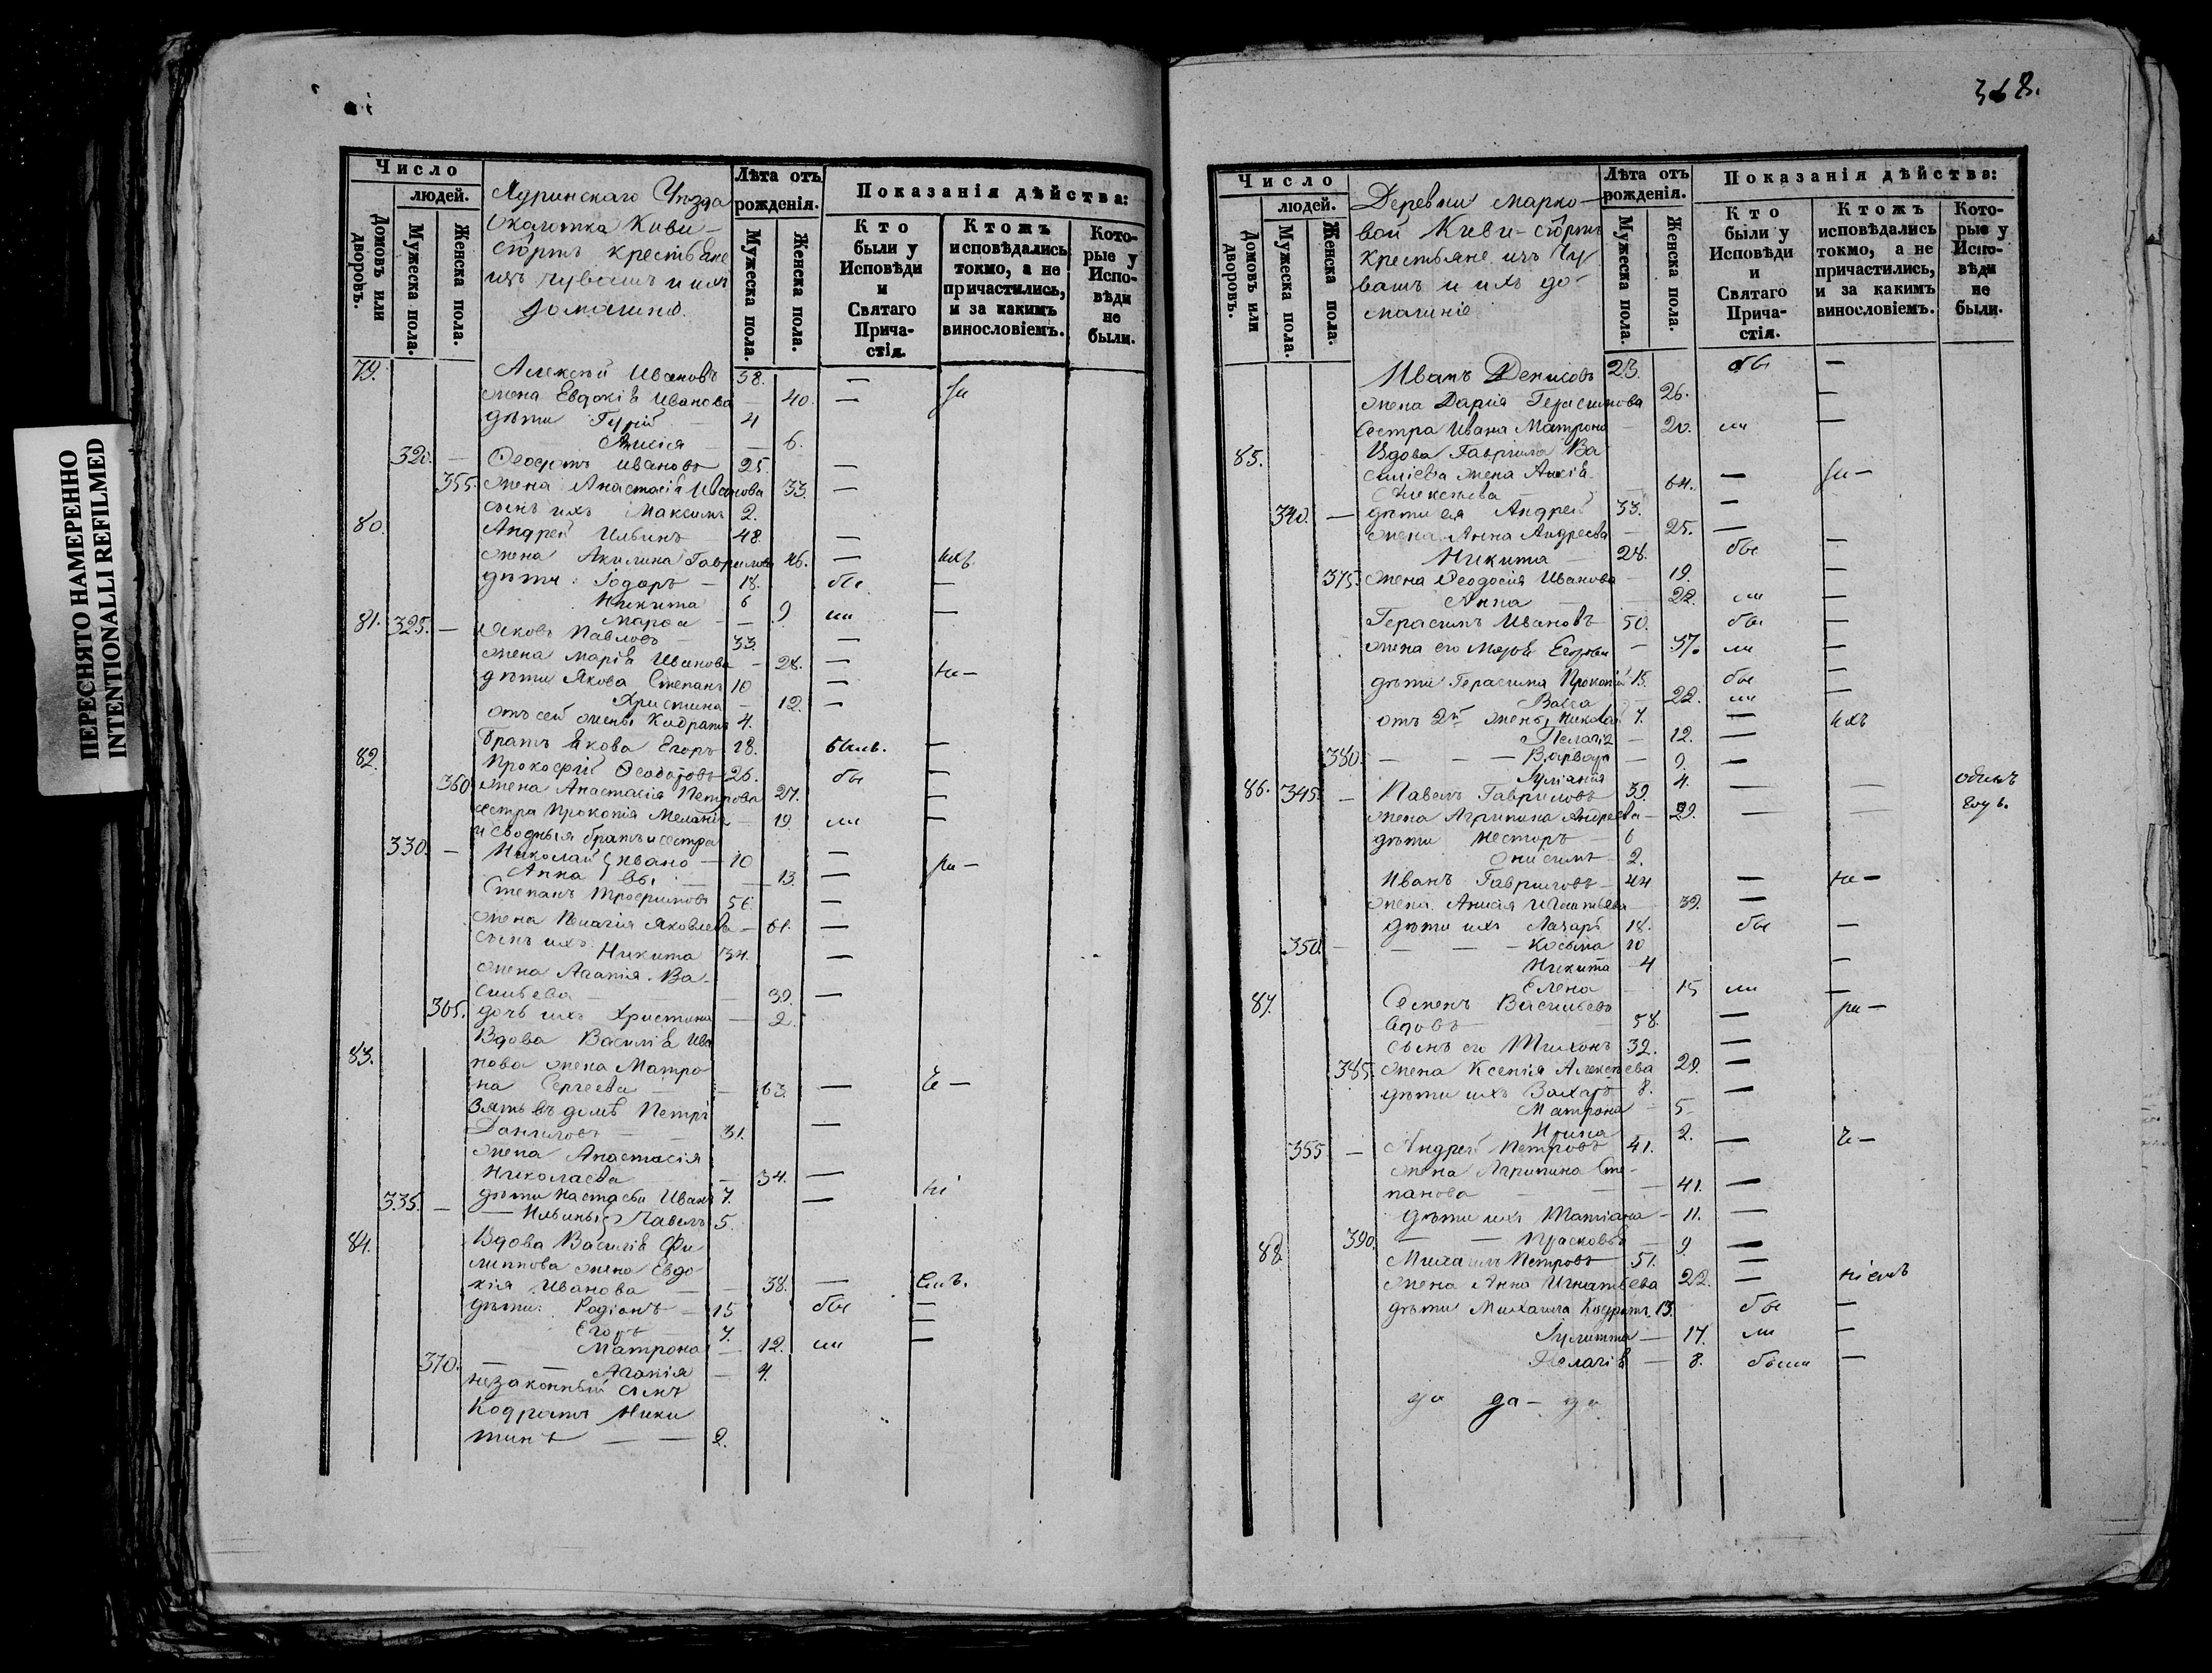 ПЕРЕСНЯТО НАМЕРЕННО
INTENTIONALLI REFILMED
Число
людей.
Домовъ или дворовъ.
Мужеска пола.
Женска пола.
Ядринскаго Уѣзда
Околотка Киви-
сюртъ крестьяне
изъ чувашъ и ихъ
домашніе.
Лѣта отъ рожденія.
Мужеска пола.
Женска пола.
Показанія дѣйства:
Кто были у Исповѣди и Святаго Прича-стія.
Ктожъ исповѣдались токмо, а не причастились, и за какимъ винословіемъ.
Кото-рые у Испо-вѣди не были.
79. Алексѣй Ивановъ 38. —
жена Евдокія Иванова — 40. —
дѣти Гурій — 4
Анисія — — 6.
320. — Ѳеодотъ Ивановъ 25. —
355. жена Анастасія Иванова 33. —
сынъ ихъ Максимъ 2.
80. Андрей Ильинъ — 48. —
жена Акилина Гаврилова 46. — ихъ
дѣти: Ѳедоръ — 18. бы
Никита 6
Марѳа — 9 ли —
81. 325. — Яковъ Павловъ — 33. —
жена Марія Иванова — 28. —
дѣти Якова Степанъ 10 —
Христина — 12. —
отъ сей жены Кодратъ 4.
Братъ Якова Егоръ 18. былъ. —
82. Прокофій Ѳеодотовъ 26. бы —
360. жена Анастасія Петрова 27. —
сестра Прокопія Меланія — 19 ли —
и сводныя братъ и сестра
330. — Николай Ивано — 10 —
Анна вы — — 13. —
Степанъ Трофимовъ 56. —
жена Пелагія Яковлева — 61. —
сынъ ихъ
Никита 34. —
жена Агапія Ва-
сильева — — 39. —
365. дочь ихъ Христина — 2.
83. Вдова Василія Ива
нова жена Матро
на Сергеева — — 63. —
Зять въ домѣ Петръ
Даниловъ — 31. —
жена Анастасія
Николаева — 34. —
335. — дѣти Настасьи Иванъ 7. —
— Ильины Павелъ 5.
84. Вдова Василія Фи
липпова жена Евдо
кія Иванова — — 38. —
дѣти: Родіонъ — 15 бы —
Егоръ — 7. —
Матрона — 12. ли —
370. — — Агапія — 4.
незаконный сынъ
Кодратъ Ники
тинъ — — 2.
368.
Число
людей.
Домовъ или дворовъ.
Мужеска пола.
Женска пола.
Деревни Марко-
вой Киви-сюртъ
крестьяне изъ Чу
вашъ и ихъ до-
машніе
Лѣта отъ рожденія.
Мужеска пола.
Женска пола.
Показанія дѣйства:
Кто были у Исповѣди и Святаго Прича-стія.
Ктожъ исповѣдались токмо, а не причастились, и за какимъ винословіемъ.
Кото-рые у Испо-вѣди не были.
Иванъ Денисовъ 23. бы —
жена Дарія Герасимова 26. —
Сестра Ивана Матрона — 20. ли —
85. Вдова Гаврила Ва
силіева жена
Алексѣева — 64. —
340. — дѣти ея Андрей 33. —
жена Анна Андреева — 25. —
Никита — 28. бы —
375. жена Ѳеодосія Иванова — 19. —
Анна — — 22. ли —
Герасимъ Ивановъ 50. бы —
жена его Марѳа Егорова — 37. ли —
дѣти Герасима Прокопій 15. бы —
22. ли —
отъ 2й жены Николай 7. — ихъ
Пелагія — 12. —
380. — — — Варвара — 9. —
4.
86. 345. — Павелъ Гавриловъ 39. — —
жена Агрипина Андреева — 29. — —
дѣти Несторъ — 6
Онисимъ — 2.
Иванъ Гавриловъ — 44 —
жена Анисія Игнатьева — 39. —
дѣти ихъ Лазарь 18. бы —
350. — — — Косьма 10
Никита — 4 —
Елена — 15 ли —
87. Семенъ Васильевъ
вдовъ — 58. —
сынъ его Тихонъ 32. —
385. жена Ксенія Алексѣева 29. —
дѣти ихъ Захаръ — 8. —
Матрона — 5
Ирина 2.
355 — Андрей Петровъ 41. —
жена Агрипина Сте-
панова — — 41. —
дѣти ихъ Татіана — 11. —
390. — — Прасковья — 9 —
88. Михаилъ Петровъ 51. —
жена Анна Игнатьева 22. — ніемъ
дѣти Михаила Кодратъ 13. бы —
Іулитта — 17. ли —
Пелагія — 8. были —